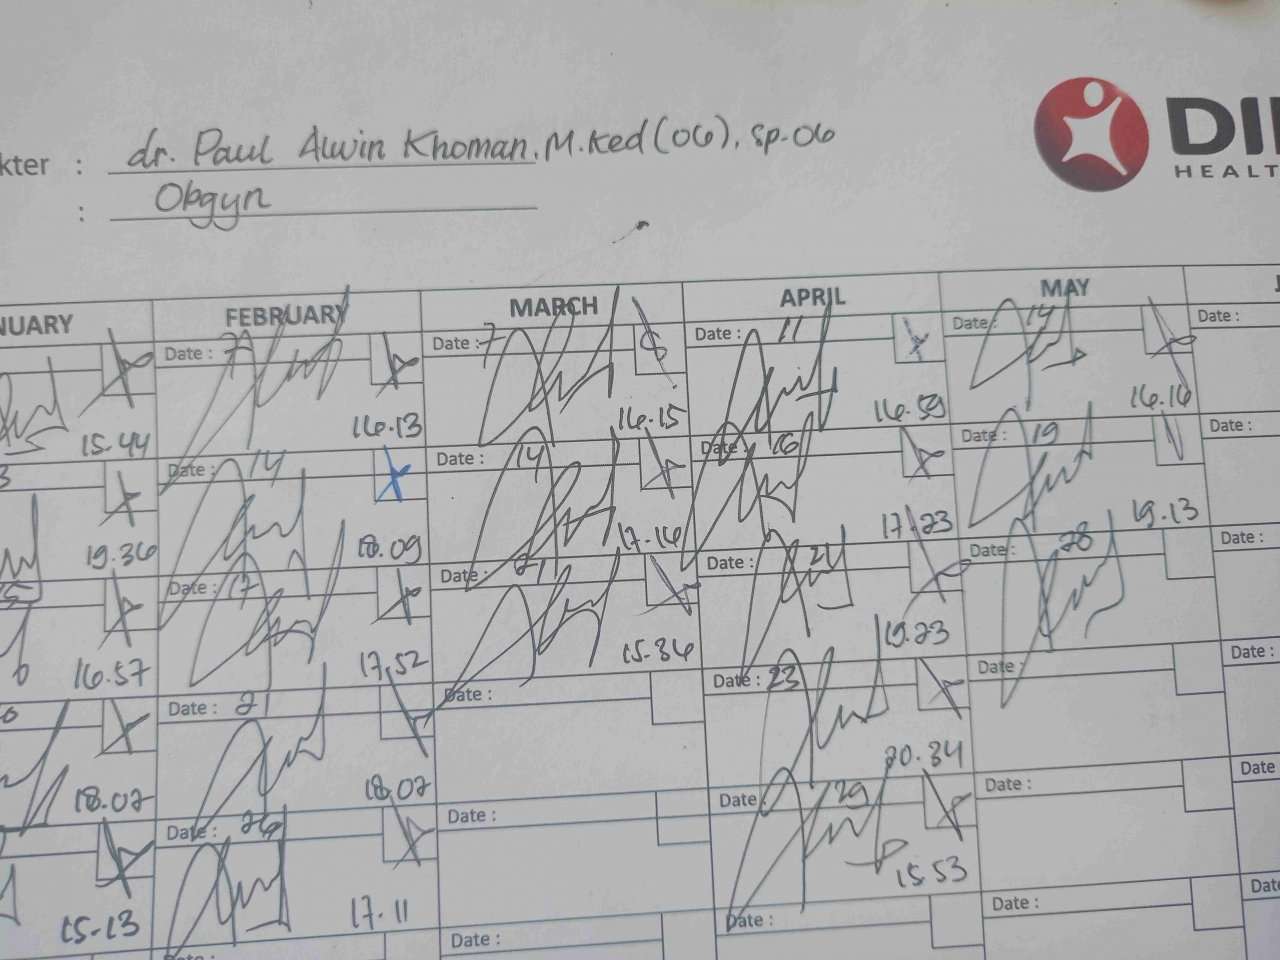 DI
HEALT
kter : dr. Paul Alwin Khoman. M.Ked (OG), Sp.OG
: Obgyn
NUARY FEBRUARY MARCH APRIL MAY
Date : 7 Date : 7 Date : 11 Date : 14 Date :
15.44 16.13 16.15 16.59 16.16
3 Date : 14 Date : 14 Date : 16 Date : 19 Date :
19.36 18.09 17.16 17.23 19.13
Date : 17 Date : 21 Date : 21 Date : 28 Date :
16.57 17.52 15.36 19.23
Date : 21 Date : Date : 23 Date : Date :
18.02 18.02 20.34
Date : 26 Date : Date : 29 Date : Date
15.13 17.11 15.53
Date : Date : Date : Date : Date